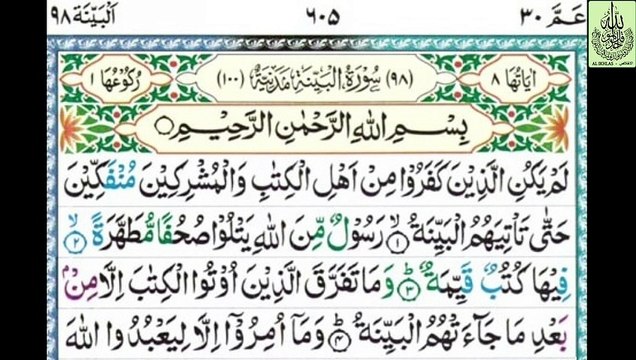 عَمَّ ۳۰
۶۰۵
اَلْبَيِّنَة ۹۸
اٰيَاتُهَا ۸
(۹۸) سُوْرَةُ الْبَيِّنَةِ مَدَنِيَّةٌ (۱۰۰)
رُكُوْعُهَا ۱
بِسْمِ اللهِ الرَّحْمٰنِ الرَّحِيْمِ
لَمْ يَكُنِ الَّذِيْنَ كَفَرُوْا مِنْ اَهْلِ الْكِتٰبِ وَالْمُشْرِكِيْنَ مُنْفَكِّيْنَ
حَتّٰى تَاْتِيَهُمُ الْبَيِّنَةُ ۙ‏﴿۱﴾ رَسُوْلٌ مِّنَ اللهِ يَتْلُوْا صُحُفًا مُّطَهَّرَةً ۙ‏﴿۲﴾
فِيْهَا كُتُبٌ قَيِّمَةٌ ؕ‏﴿۳﴾ وَمَا تَفَرَّقَ الَّذِيْنَ اُوْتُوا الْكِتٰبَ اِلَّا مِنْۢ
بَعْدِ مَا جَآءَتْهُمُ الْبَيِّنَةُ ؕ‏﴿۴﴾ وَمَاۤ اُمِرُوْۤا اِلَّا لِيَعْبُدُوا اللهَ
AL IKHLAS